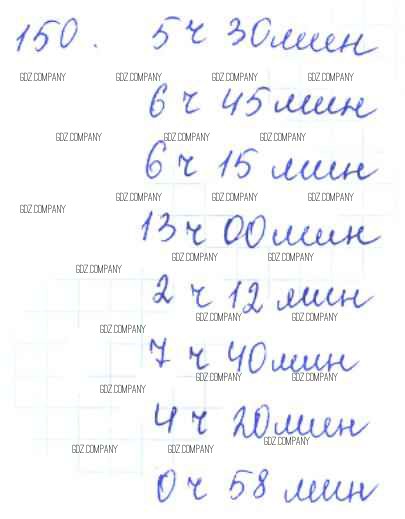 150. 5 ч 30 мин
GDZ.COMPANY GDZ.COMPANY GDZ.COMPANY GDZ.COMPANY
6 ч 45 мин
GDZ.COMPANY GDZ.COMPANY GDZ.COMPANY
6 ч 15 мин
GDZ.COMPANY GDZ.COMPANY GDZ.COMPANY
GDZ.COMPANY
13 ч 00 мин
GDZ.COMPANY GDZ.COMPANY
GDZ.COMPANY
2 ч 12 мин
GDZ.COMPANY GDZ.COMPANY
GDZ.COMPANY
7 ч 40 мин
GDZ.COMPANY GDZ.COMPANY
GDZ.COMPANY
4 ч 20 мин
GDZ.COMPANY
GDZ.COMPANY GDZ.COMPANY
0 ч 58 мин